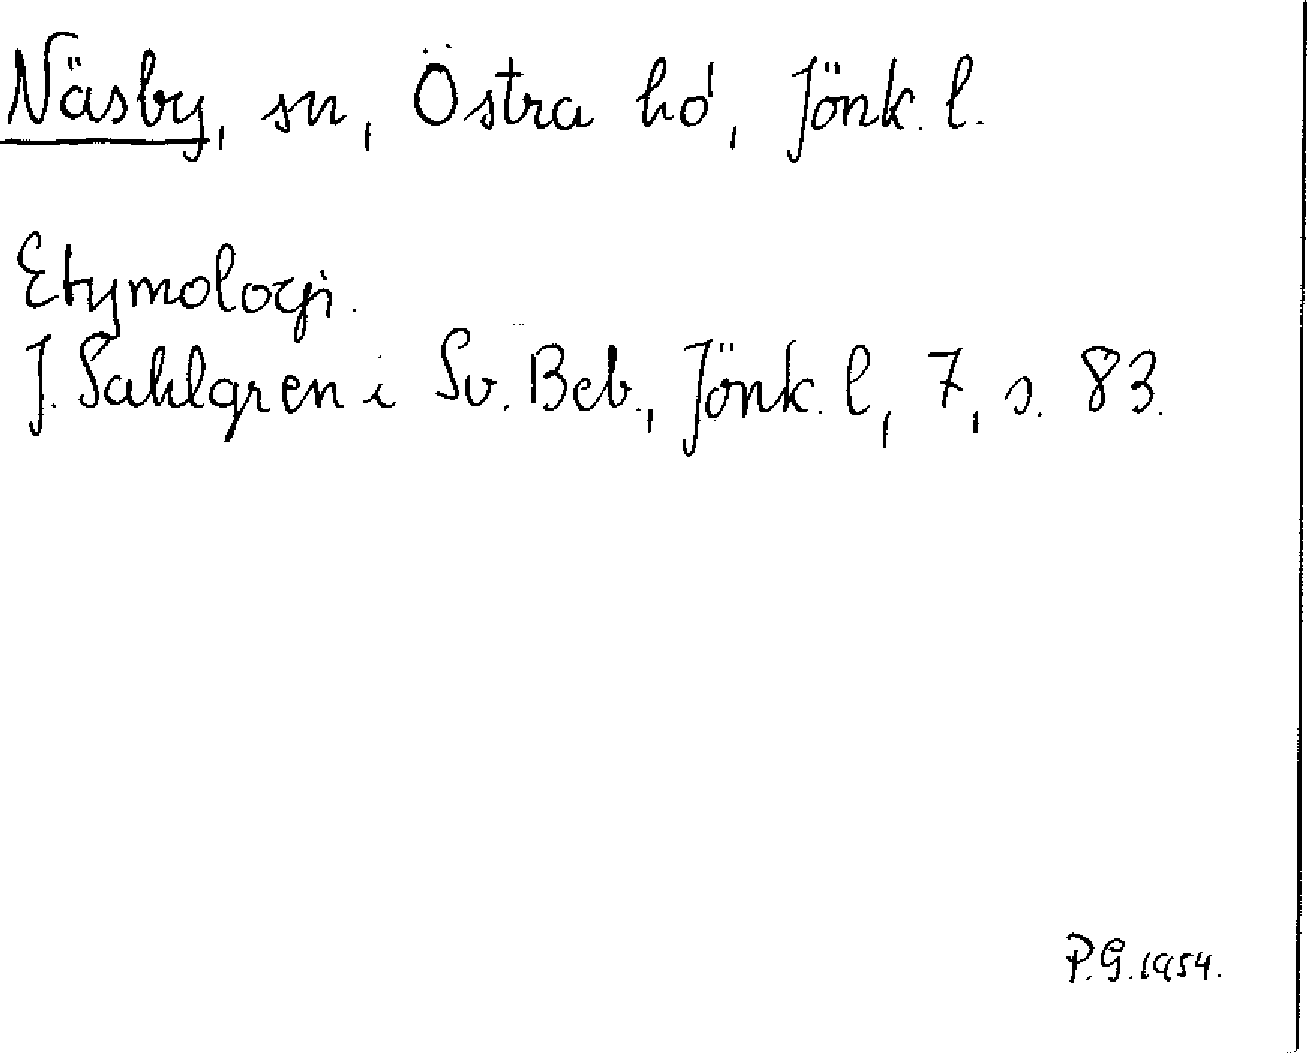 Näsby, sn, Östra hd, Jönk. l.
Etymologi.
J. Sahlgren i Sv. Beb., Jönk. l, 7, s. 83.
P.G. 1954.